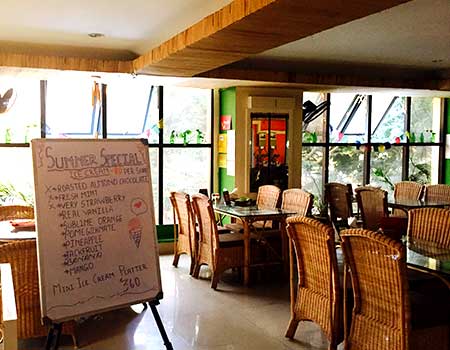 SUMMER SPECIAL!
ICE CREAM - 80 PER SCOOP
× ROASTED ALMOND CHOCOLATE
× FRESH MINT
× VERY STRAWBERRY
× REAL VANILLA
× SUBLIME ORANGE
× POMEGRANATE
× PINEAPPLE
× JACKFRUIT
× BANANA
× MANGO
MINI ICE CREAM PLATTER
360